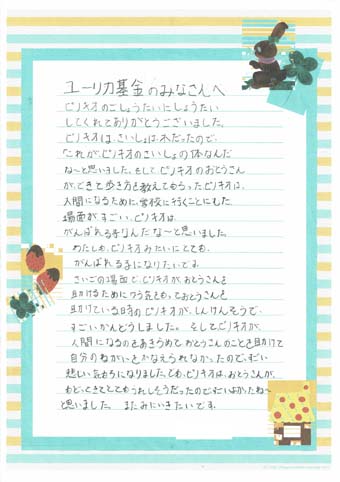 ユーリカ基金のみなさんへ
ピノキオのごしょうたいにしょうたい
してくれてありがとうございました。
ピノキオは、さいしょは、木だったので、
「これが、ピノキオのさいしょの体なんだ
な〜と思いました。そして、ピノキオのおとうさん
ができて歩き方を教えてもらったピノキオは、
人間になるために、学校に行くことにした
場面がすごい、ピノキオは
がんばれる子なんだな〜と思いました。
わたしも、ピノキオみたいにとても、
がんばれる子になりたいです。
さいごの場面で、ピノキオが、おとうさんを
助けるために
おとうさんを
助けている時のピノキオが、しんけんそうで、
すごいかんどうしました。そして、ピノキオが、
人間になるのをあきらめておとうさんのことを助けて
自分のねがいをかなえられなかったので、すごい
悲しい気もちになりました。でも、ピノキオは、おとうさんが、
もどってきてとてもうれしそうだったので、すごいよかったね〜
と思いました。またみにいきたいです。